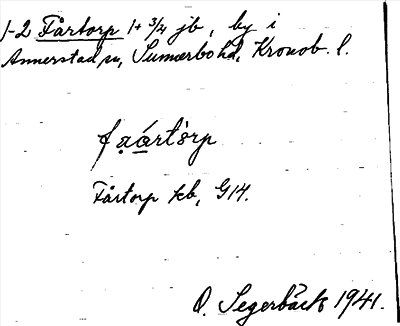 1-2 Fårtorp 1+3/4 jb, by i
Annerstad sn, Sunnerbo hd, Kronob. l.
fa̤ártòrp
Fårtorp kb, G14.
O. Segerbäck 1941.